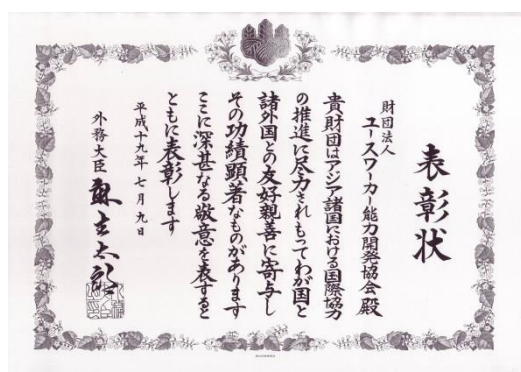 表彰状
財団法人
ユースワーカー能力開発協会 殿
貴財団はアジア諸国における国際協力
の推進に尽力されもってわが国と
諸外国との友好親善に寄与し
その功績顕著なものがあります
ここに深甚なる敬意を表すると
ともに表彰します
平成十九年七月九日
外務大臣 麻生太郎